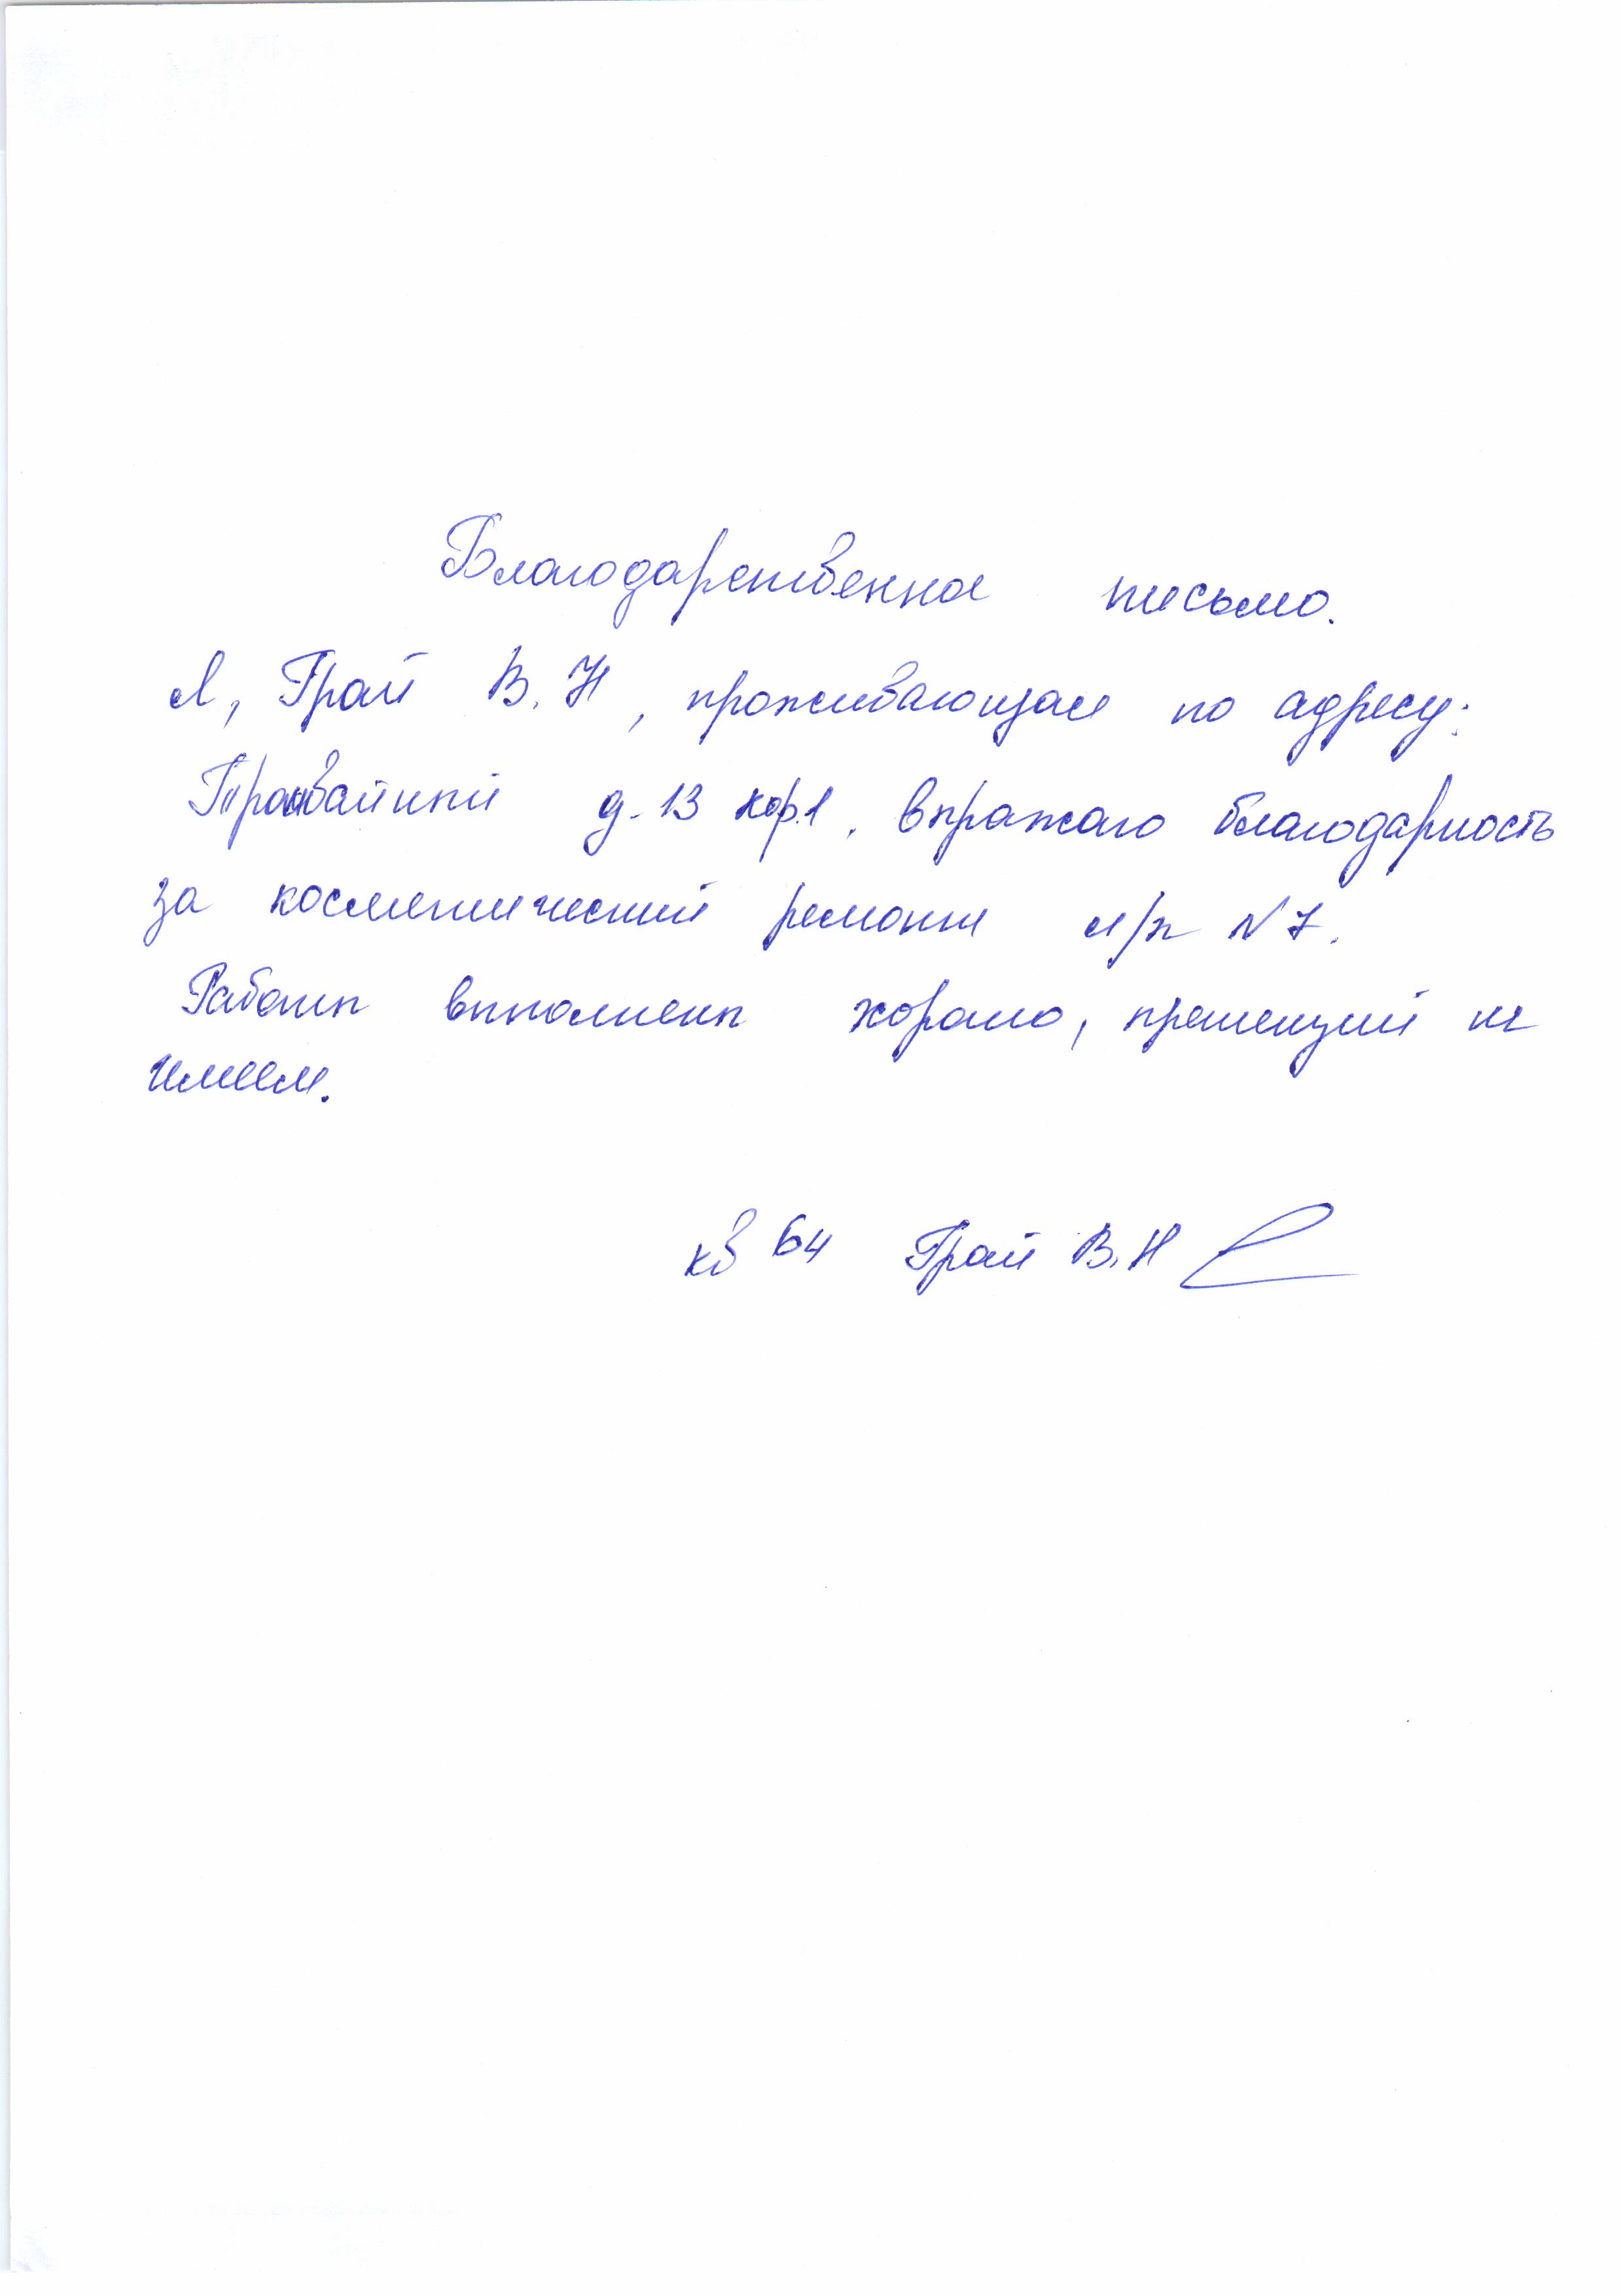 Благодарственное письмо.
Я, Грай В. Н, проживающая по адресу:
Трамвайный д. 13 кор.1, выражаю благодарность
за косметический ремонт л/к N 7.
Работы выполнены хорошо, претензий не
имеем.
кв 64 Грай В. Н